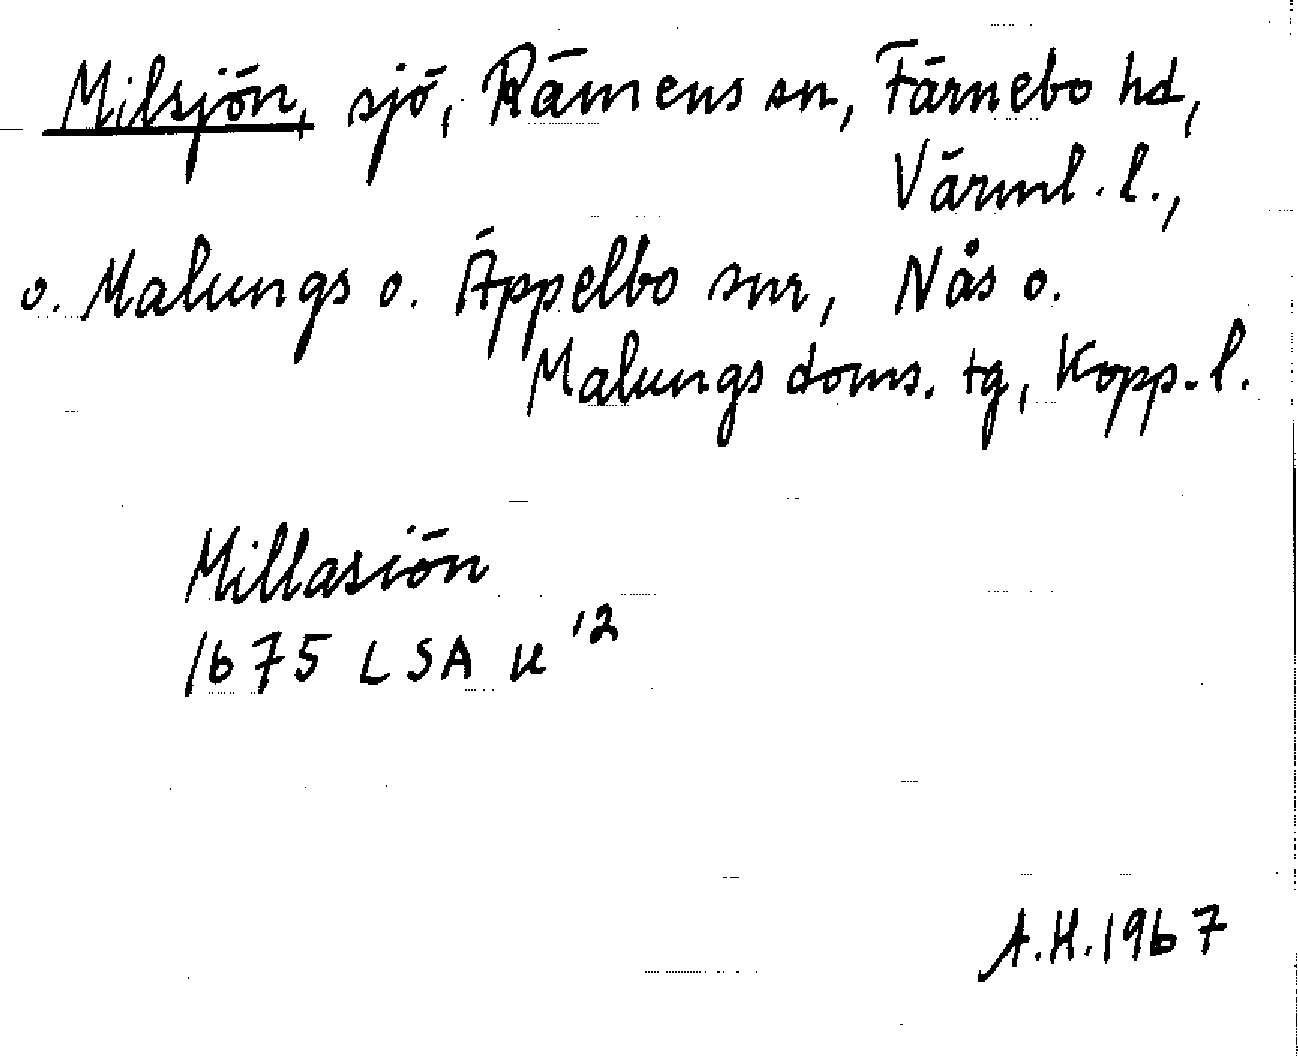 Milsjön, sjö, Rämens sn, Färnebo hd,
Värml. l.,
o. Malungs o. Äppelbo snr, Nås o.
Malungs doms. tg, Kopp. l.
Millasiön
1675 LSA U '2
A.H. 1967